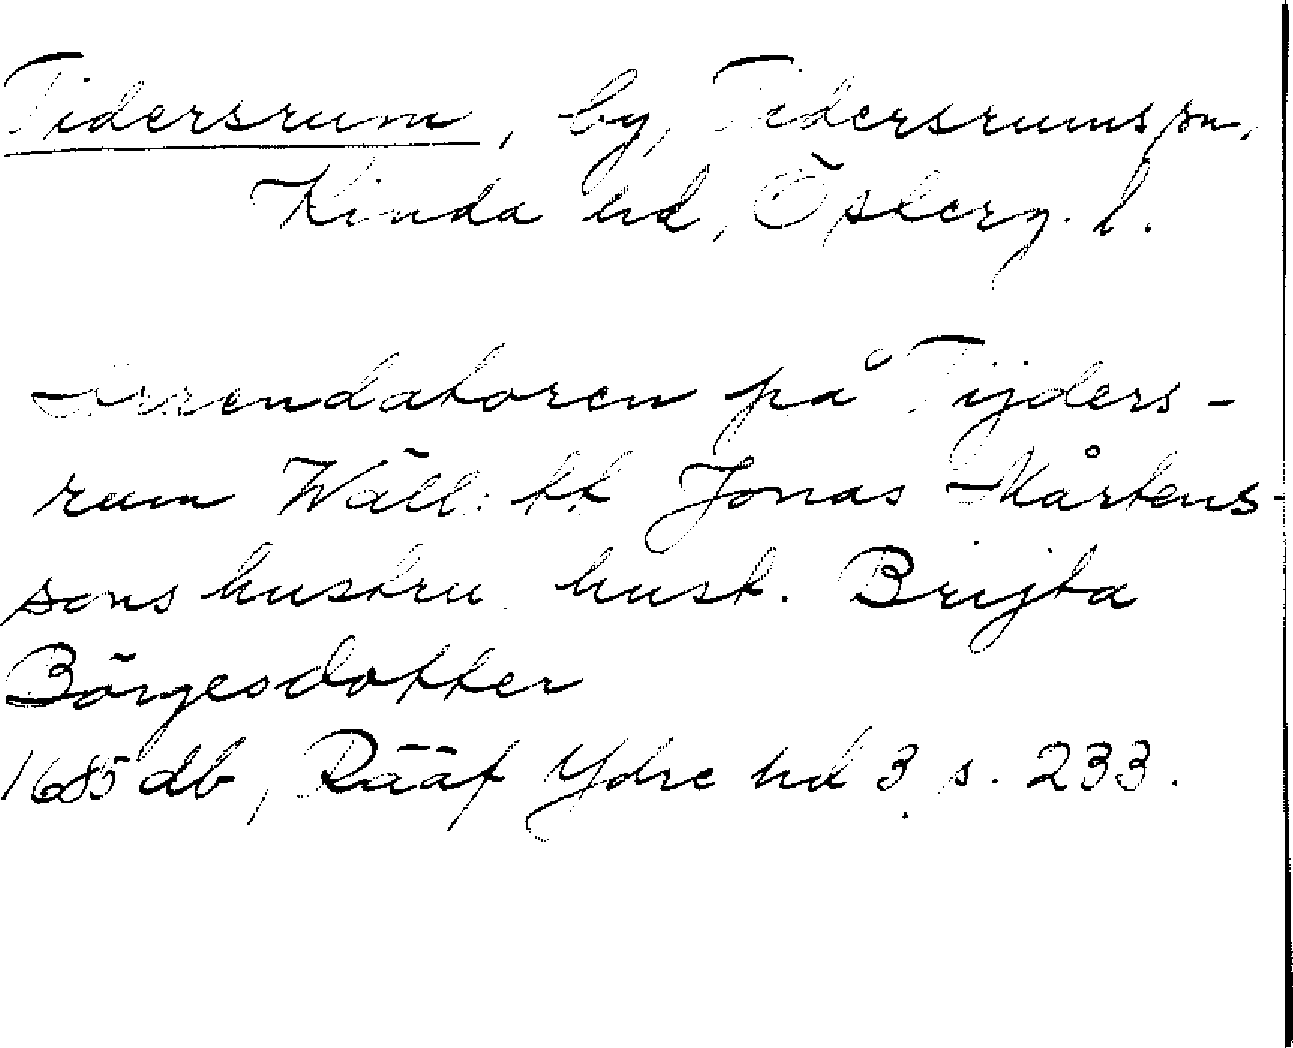 Tidersrum, by, Tidersrums sn,
Kinda hd, Österg. l.
Arrendatoren på Tijders-
rum Wäll: tt Jonas Mårtens-
sons hustru hust. Brijta
Börgesdotter
1685 db, Rääf Ydre hd 3, s. 233.